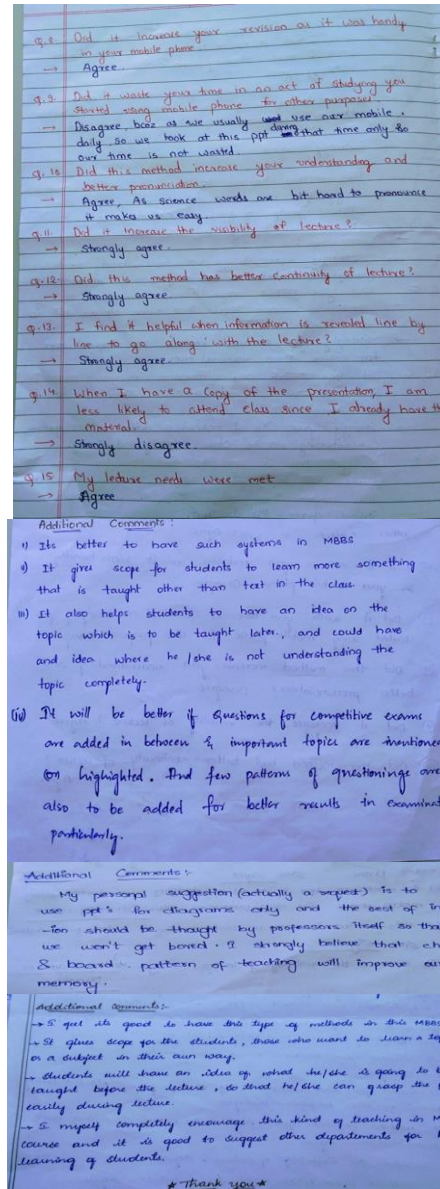 Q.8 Did it increase your revision as it was handy
in your mobile phone
→ Agree.
Q.9 Did it waste your time in an act of studying you
started using mobile phone for other purposes
→ Disagree, bcoz as we usually use our mobile
daily so we took at this ppt during that time only so
our time is not wasted.
Q.10 Did this method increase your understanding and
better pronunciation.
→ Agree, As science words are bit hard to pronounce
it makes us easy.
Q.11 Did it increase the visibility of lecture?
→ Strongly agree.
Q.12 Did this method has better continuity of lecture?
→ Strongly agree
Q.13. I find it helpful when information is revealed line by
line to go along with the lecture?
→ Strongly agree.
Q.14 When I have a copy of the presentation, I am
less likely to attend class since I already have th
material.
→ Strongly disagree.
Q.15 My lecture needs were met
→ Agree
Additional Comments :
i) Its better to have such systems in MBBS
ii) It gives scope for students to learn more something
that is taught other than text in the class
iii) It also helps students to have an idea on the
topic which is to be taught later., and could have
and idea where he/she is not understanding the
topic completely.
(iv) It will be better if questions for competitive exams
are added in between & important topics are mentioned
(or) highlighted. And few patterns of questionings are
also to be added for better results in examinat
particularly.
Additional Comments :-
My personal suggestion (actually a request) is to
use ppt's for diagrams only and the rest of in
-ion should be thought by professors itself so tha
we won't get bored. I strongly believe that ch
& board pattern of teaching will improve our
memory.
Additional comments:-
→ I feel its good to have this type of methods in this MBBS
→ It gives scope for the students, those who want to learn a to
or a subject in their own way.
→ Students will have an idea of what he/she is going to b
taught before the lecture, so that he/she can grasp the
easily during lecture.
→ I myself completely encourage this kind of teaching in M
course and it is good to suggest other departements for
learning of students.
★ Thank you ★